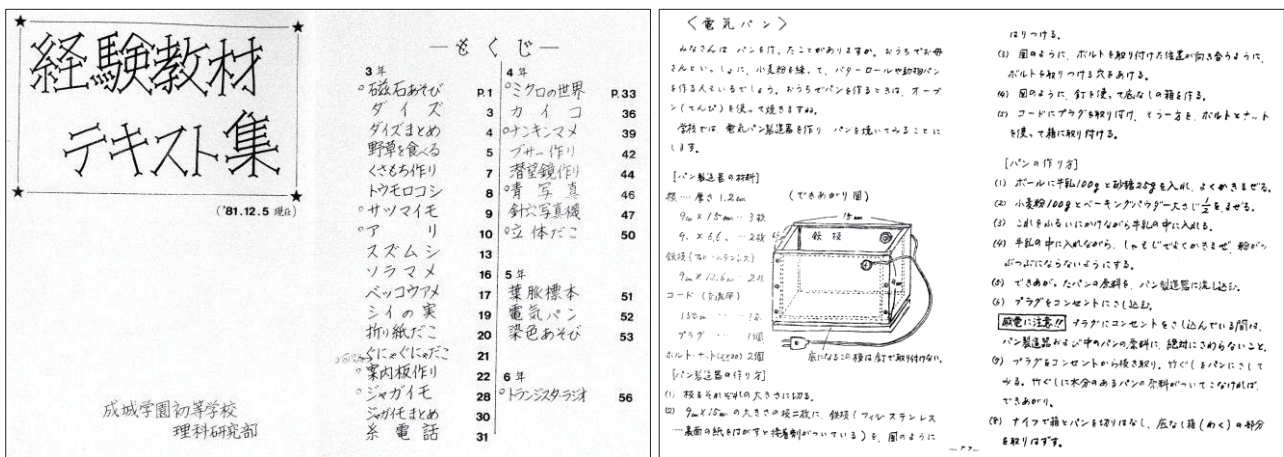 経験教材
テキスト集
('81.12.5 現在)
成城学園初等学校
理科研究部
―もくじ―
3年
○磁石あそび P.1
ダイズ 3
ダイズまとめ 4
野草を食べる 5
くさもち作り 7
トウモロコシ 8
○サツマイモ 9
○アリ 10
スズムシ 13
ソラマメ 16
ベッコウアメ 17
シイの実 19
折り紙だこ 20
ぐにゃぐにゃだこ 21
○案内板作り 22
○ジャガイモ 28
ジャガイモまとめ 30
糸電話 31
4年
○ミクロの世界 P.33
カイコ 36
○ナンキンマメ 39
ブザー作り 42
潜望鏡作り 44
○青写真 46
針穴写真機 47
○立体だこ 50
5年
葉脈標本 51
電気パン 52
染色あそび 53
6年
○トランジスターラジオ 56
〈電気パン〉
みなさんは パンを作ったことがありますか。おうちでお母
さんといっしょに、小麦粉を練って、バターロールや動物パン
を作る人もいるでしょう。おうちでパンを作るときは、オーブ
ン(てんぴ)を使って焼きますね。
学校では 電気パン製造器を作り パンを焼いてみることに
します。
[パン製造器の材料]
板…厚さ1.2cm
9cm×15cm…3枚
9. ×6.6. …2枚
鉄板(フィルムステンレス)
9cm×12.6cm…2枚
コード(交流用)
150cm 1本
プラグ … 1個
ボルト・ナット 2個
(できあがり図)
15cm
鉄板
底になるこの板は釘で取り付けない。
[パン製造器の作り方]
(1) 板をそれぞれの大きさに切る。
(2) 9cm×15cmの大きさの板二枚に、鉄板(フィルムステンレス
…裏面の紙をはがすと接着剤がついている)を、図のように
はりつける。
(3) 図のように、ボルトを取り付けた位置が向き合うように、
ボルトを取りつける穴をあける。
(4) 図のように、釘を使って底なしの箱を作る。
(5) コードにプラグを取り付け、もう一方を、ボルトとナット
を使って箱に取り付ける。
[パンの作り方]
(1) ボールに牛乳100gと砂糖25gを入れ、よくかきまぜる。
(2) 小麦粉100gとベーキングパウダー大さじ1/2をまぜる。
(3) これをふるいにかけながら牛乳の中に入れる。
(4) 牛乳の中に入れながら、しゃもじでよくかきまぜ、粉がつ
ぶつぶにならないようにする。
(5) できあがったパンの原料を、パン製造器に流し込む。
(6) プラグをコンセントにさし込む。
感電に注意!! プラグにコンセントをさし込んでいる間は、
パン製造器および中のパンの原料に、絶対にさわらないこと。
(7) プラグをコンセントから抜き取り、竹ぐしをパンにさして
みる。竹ぐしに水分のあるパンの原料がついてこなければ、
できあがり。
(8) ナイフで箱とパンを切りはなし、底なし箱(わく)の部分
を取りはずす。